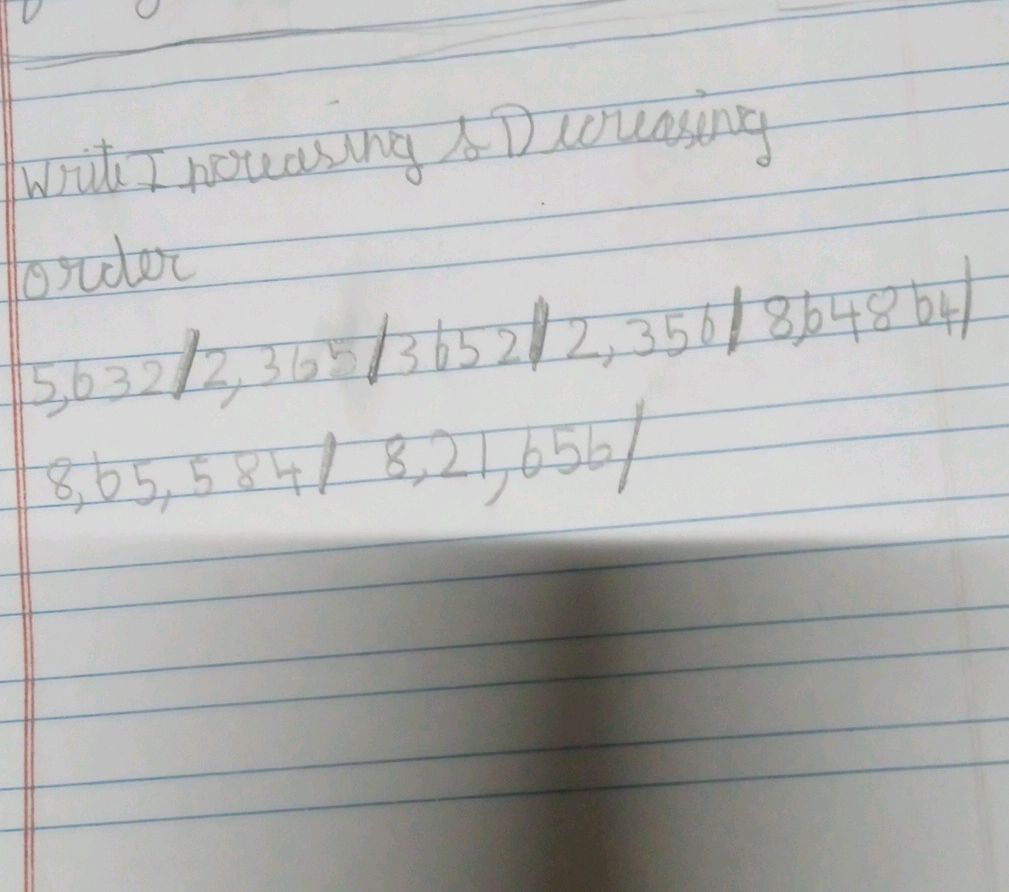 Write Increasing & Decreasing
order
5,632/2,365/3652/2,356/8,64864/
8,65,584/ 8,21,656/